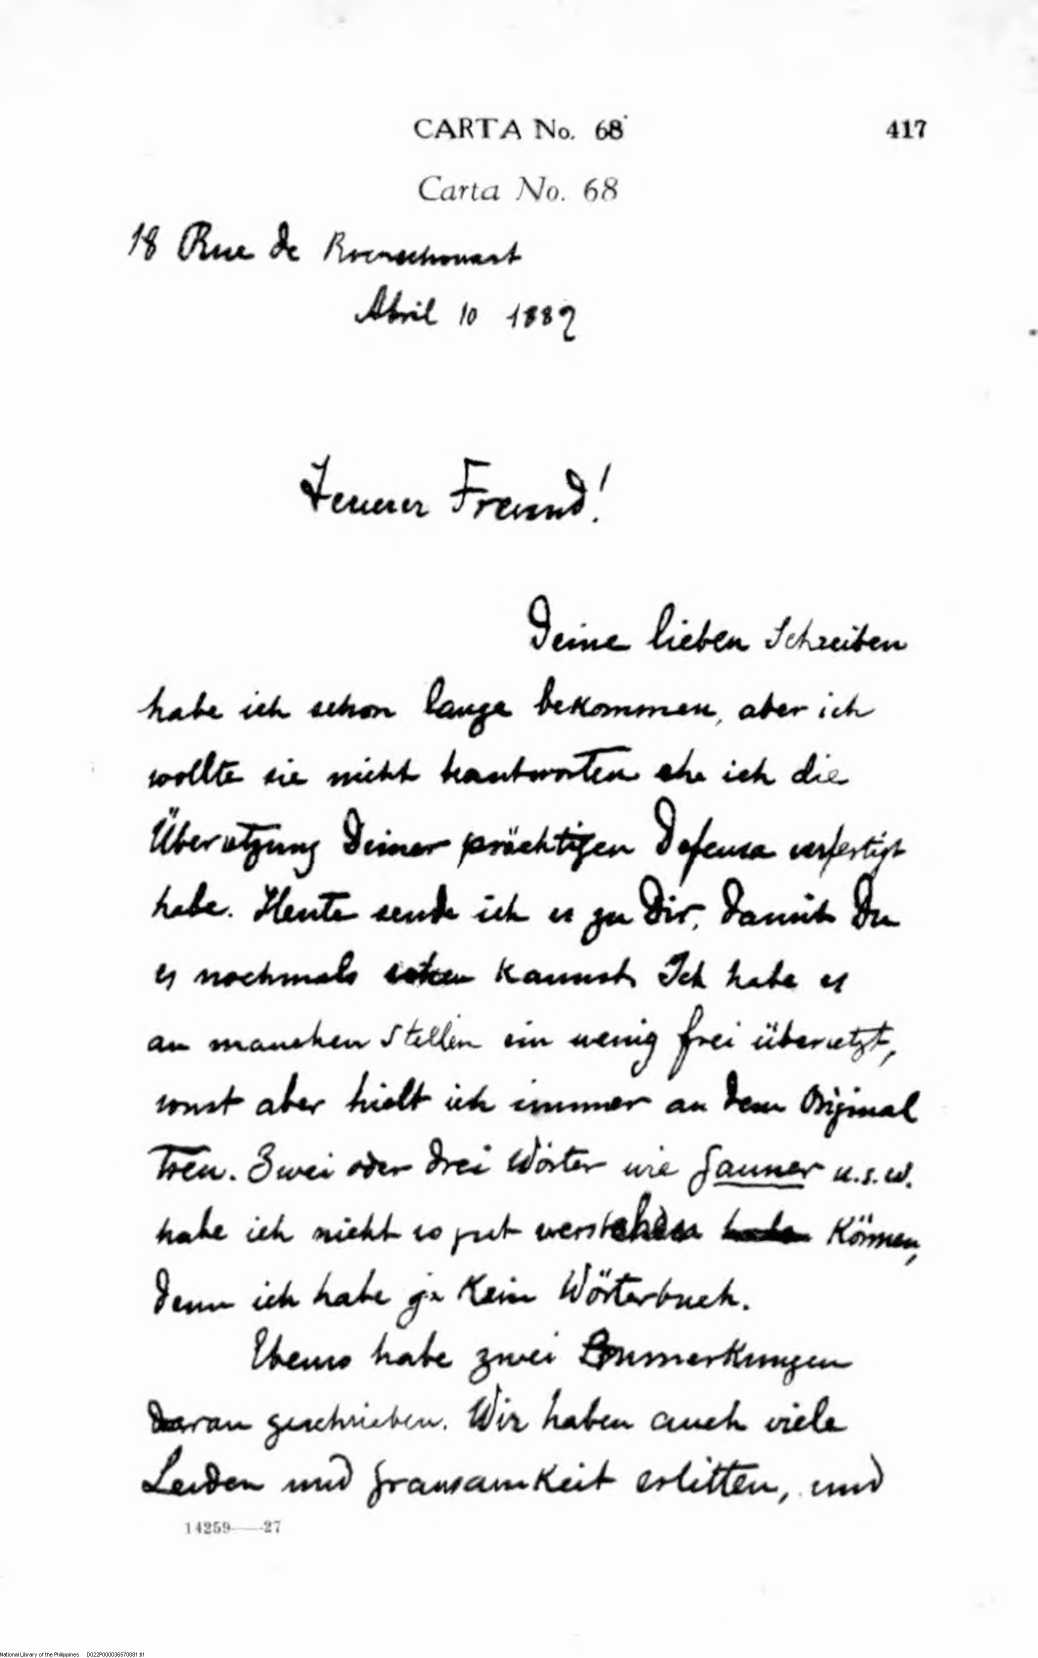 CARTA No. 68
417
Carta No. 68
18 Rue de
Abril 10 1889
Teuerer Freund!
Deine lieben Schreiben
habe ich schon lange bekommen, aber ich
wollte sie nicht beantworten ehe ich die
Übersetzung Deiner prächtigen Defensa verfertigt
habe. Heute sende ich es zu Dir, damit Du
es nochmals sehen kannst. Ich habe es
an manchen Stellen ein wenig frei übersetzt,
sonst aber hielt ich immer an dem Original
treu. Zwei oder drei Wörter wie Gauner u.s.w.
habe ich nicht so gut verstehen können,
denn ich habe ja kein Wörterbuch.
Ebenso habe zwei Anmerkungen
daran geschrieben. Wir haben auch viele
Leiden und Grausamkeit erlitten, und
14259——27
National Library of the Philippines